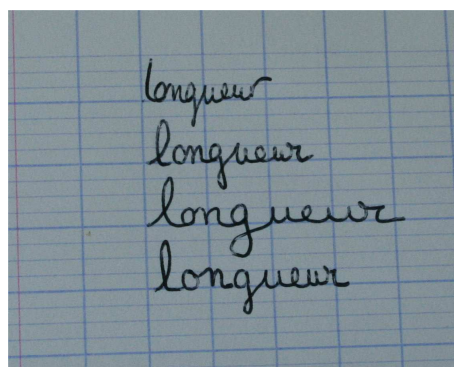 longueur
longueur
longueur
longueur